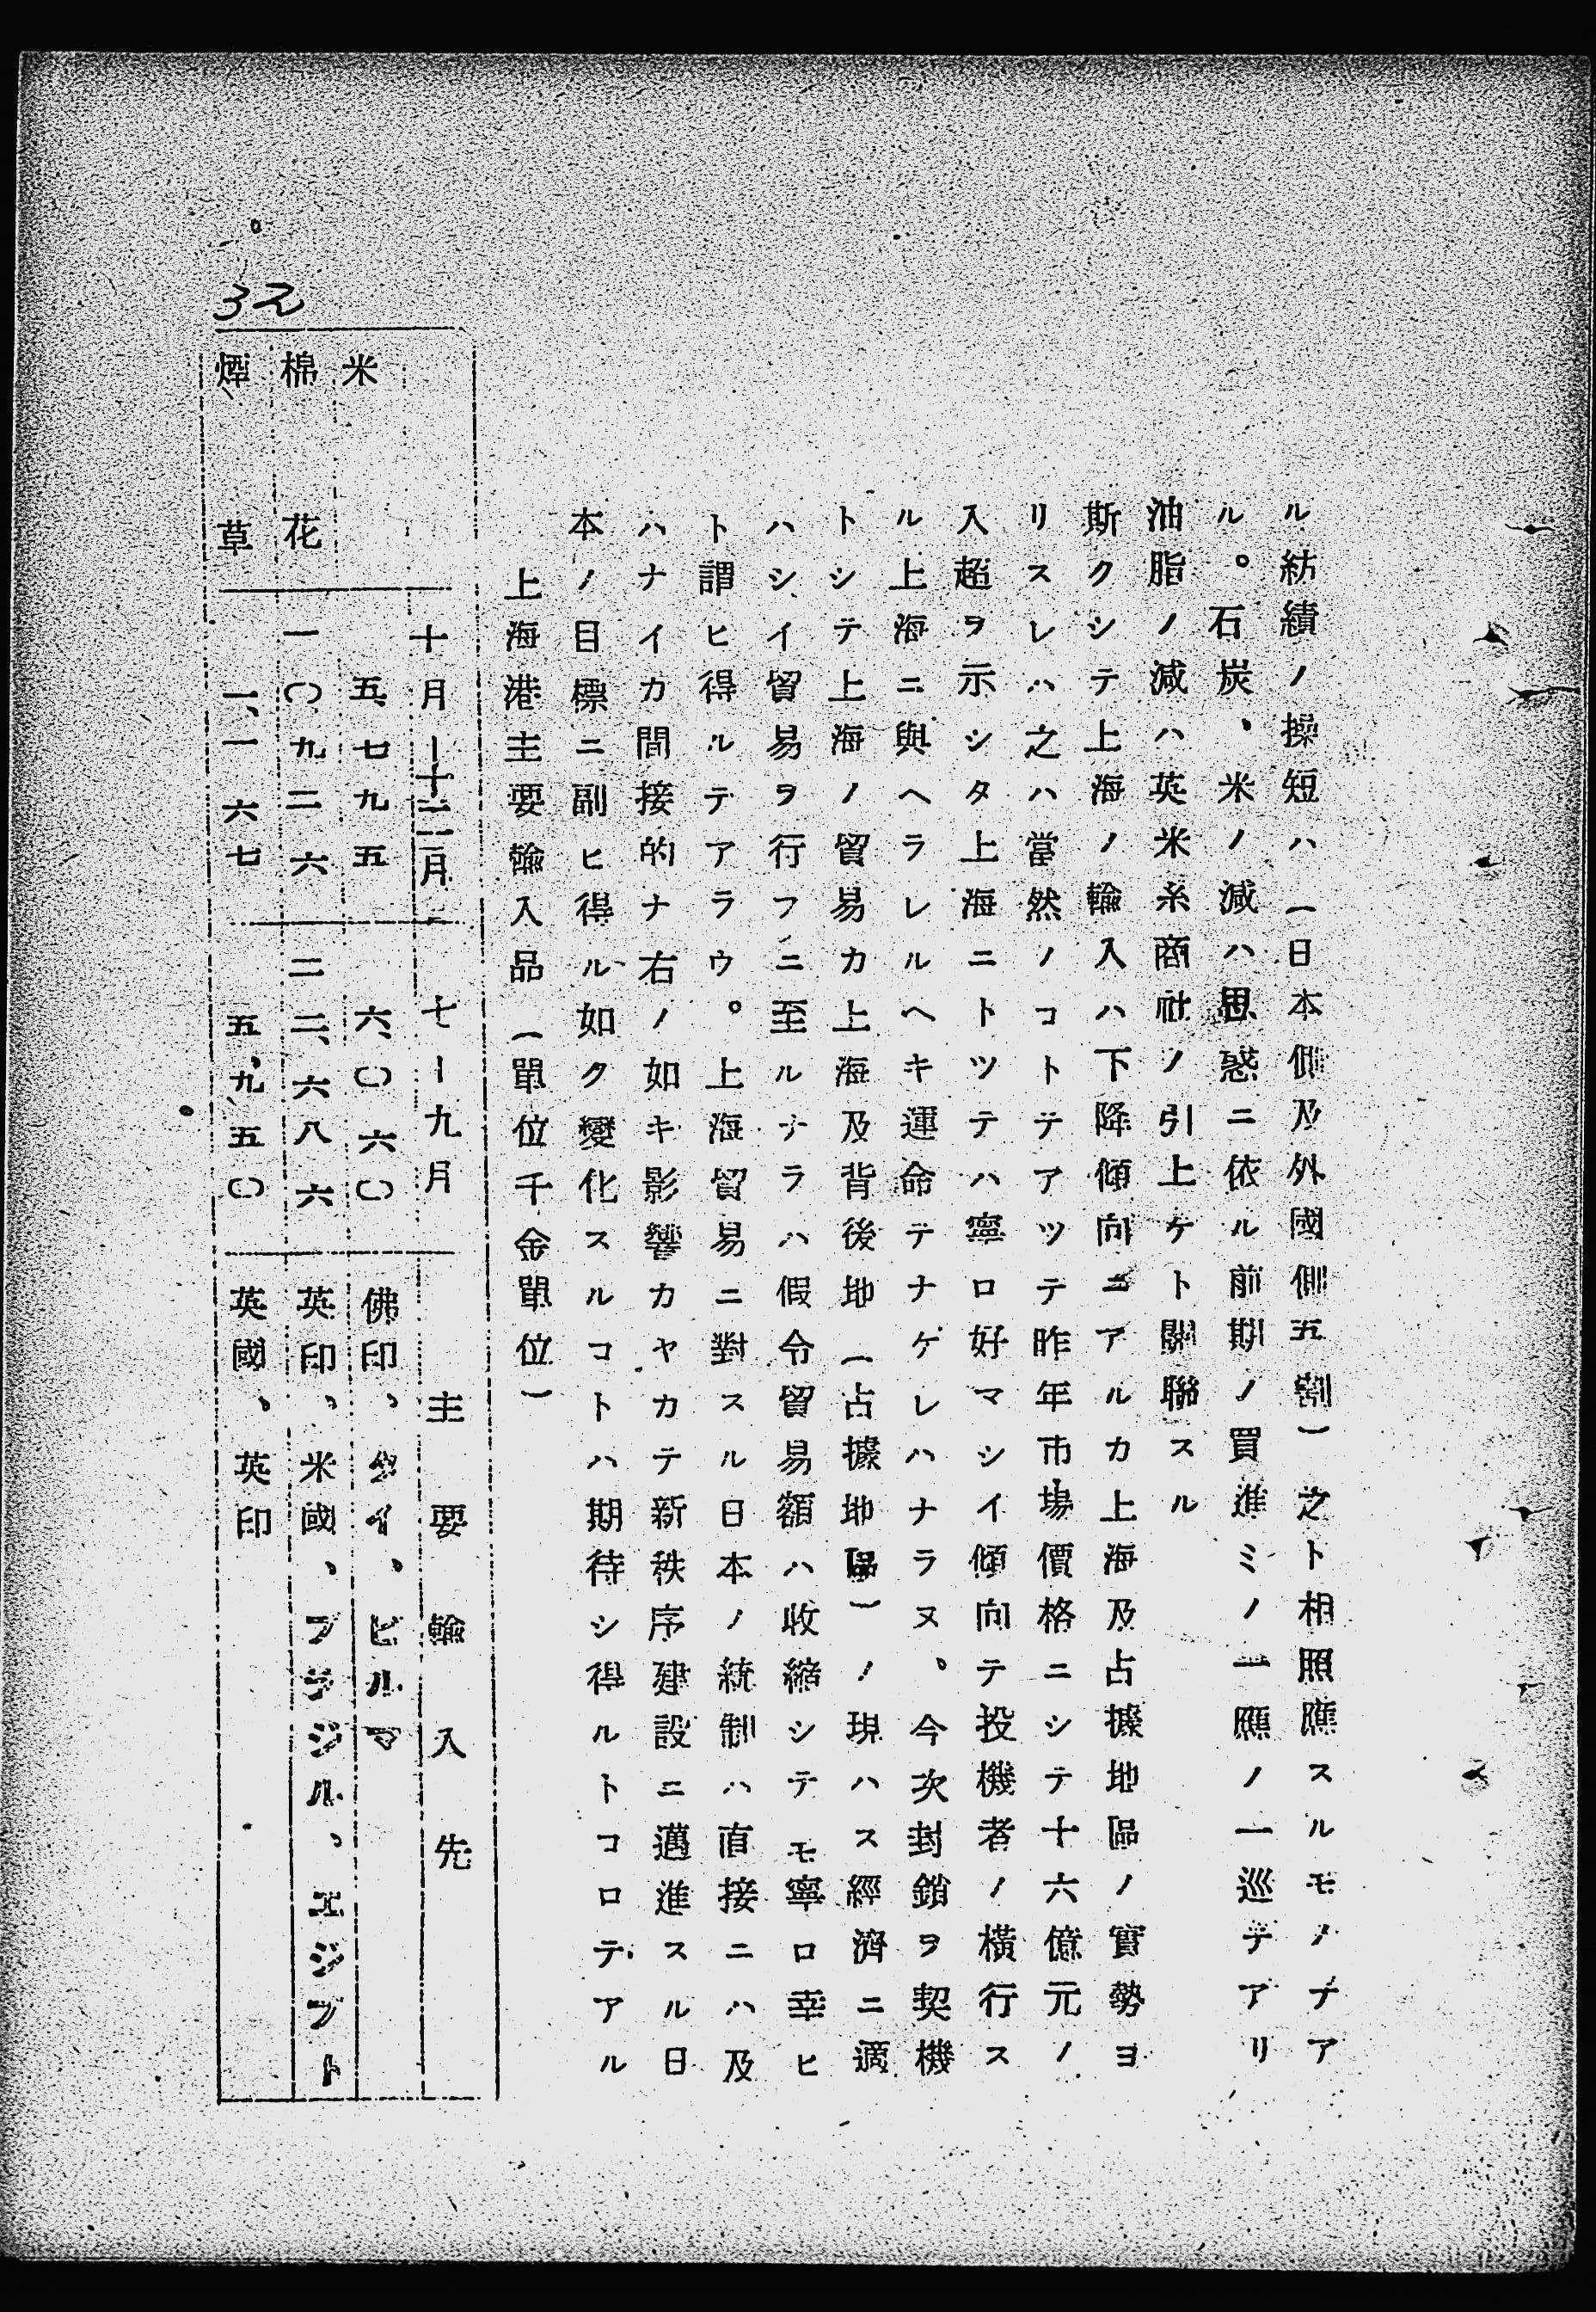 ル紡績ノ操短ハ(日本側及外國側五割)之ト相照應スルモノナア
ル。石炭、米ノ減ハ思惑ニ依ル前期ノ買進ミノ一應ノ一巡テアリ
油脂ノ減ハ英米系商社ノ引上ケト關聯スル
斯クシテ上海ノ輸入ハ下降傾向ニアルカ上海及占據地區ノ實勢ヨ
リスレハ之ハ當然ノコトテアツテ昨年市場價格ニシテ十六億元ノ
入超ヲ示シタ上海ニトツテハ寧ロ好マシイ傾向テ投機者ノ橫行ス
ル上海ニ與ヘラレルヘキ運命テナケレハナラヌ、今次封鎖ヲ契機
トシテ上海ノ貿易カ上海及背後地(占據地區)ノ現ハス經濟ニ適
ハシイ貿易ヲ行フニ至ルナラハ假令貿易額ハ收縮シテモ寧ロ幸ヒ
ト謂ヒ得ルテアラウ。上海貿易ニ對スル日本ノ統制ハ直接ニハ及
ハナイカ間接的ナ右ノ如キ影響カヤカテ新秩序建設ニ邁進スル日
本ノ目標ニ副ヒ得ル如ク變化スルコトハ期待シ得ルトコロテアル
上海港主要輸入品(單位千金單位)
十月ー十二月 七ー九月 主要輸入先
米 五、七九五 六、〇六〇 佛印、タイ、ビルマ
棉花 一〇、九二六 二二、六八六 英印、米國、ブラジル、エジプト
煙草 一、一六七 五、九五〇 英國、英印
32